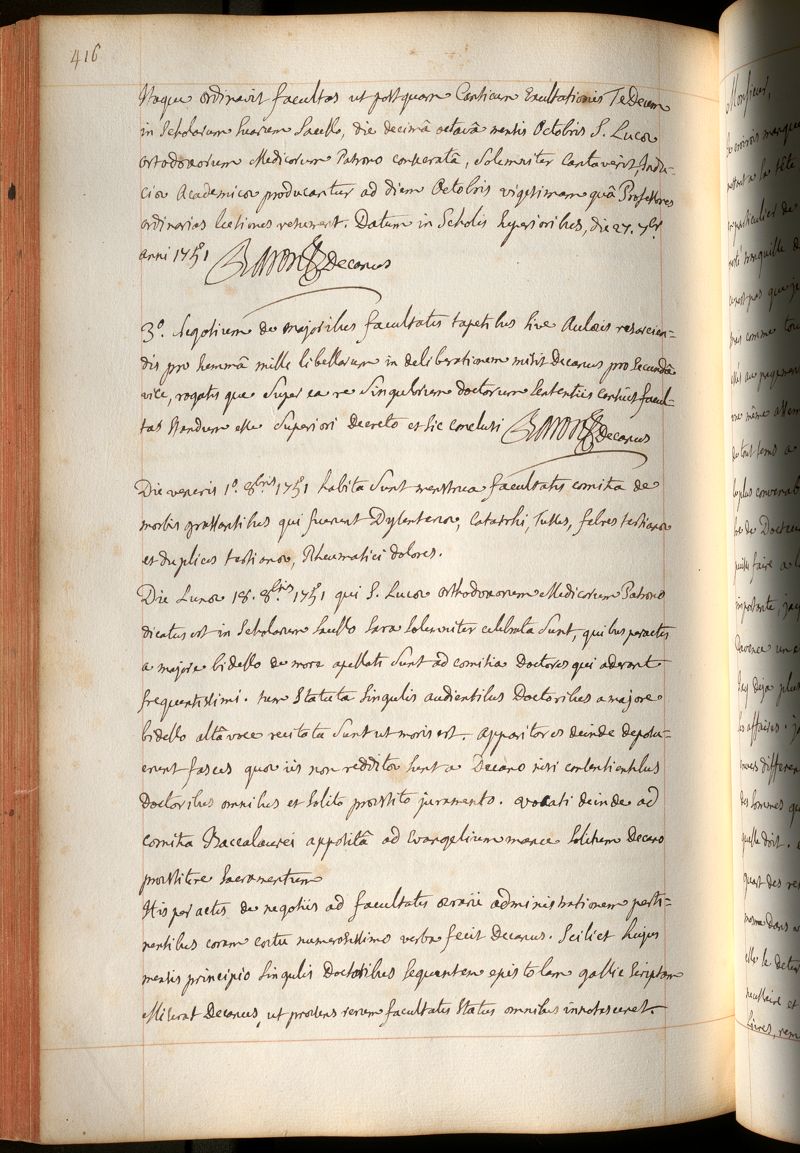 416
Itaque ordinavit facultas ut postquam Canticum Exultationis Te Deum
in Scholarum suarum Sacello, die decimâ octavâ mensis Octobris S. Lucæ
orthodoxorum Medicorum Patrono consecratâ, solemniter cantaverit, Indu-
ciæ Academicæ producantur ad diem Octobris vigesimam quâ Professores
ordinarias lectiones resument. Datum in Scholis superioribus, die 27. 7br.
anni 1751 Baron Decanus
3°. Negotium de majoribus facultatis tapetibus sive Aulæis resarcien-
dis pro summâ mille libellarum in deliberationem misit Decanus pro secundâ
vice, rogatis que super ea re singulorum doctorum sententiis censuit facul-
tas standum esse superiori Decreto et sic conclusi Baron Decanus
Die veneris 1°. 8bris 1751 habita sunt menstrua facultatis comitia de
morbis grassantibus qui fuerunt Dysenteriæ, Catarrhi, Tusses, febres tertianæ
et duplices tertianæ, Rheumatici dolores.
Die Lunæ 18. 8bris 1751 qui S. Lucæ orthodoxorum Medicorum Patrono
dicatus est in Scholarum sacello sacra solemniter celebrata sunt, quibus peractis
a majore bidello de more apellati sunt ad comitia Doctores qui aderant
frequentissimi. tum Statuta singulis audientibus Doctoribus a majore
bidello altâ voce recitata sunt ut moris est. apparitores deinde deposu-
erunt fasces quos iis non redditos sunt a Decano nisi consentientibus
Doctoribus omnibus et solito præstito juramento. vocati deinde ad
comitia Baccalaurei appositâ ad Evangelium manu solitum Decano
præstitere sacramentum
His peractis de negotiis ad facultatis ærarii administrationem perti-
nentibus coram cœtu numerosissimo verba fecit Decanus. Scilicet hujus
mensis principio singulis Doctoribus sequentem epistolam gallicè scriptam
Miserat Decanus, ut præsens rerum facultatis status omnibus innotesceret.
Monsieur,